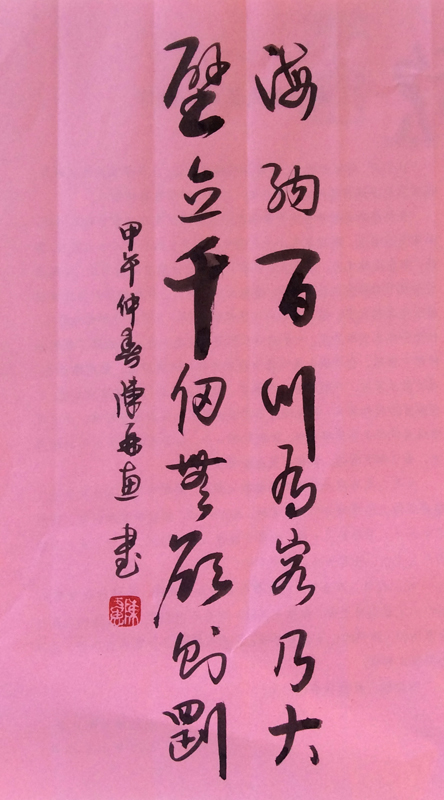 海纳百川为容乃大
壁立千仞無欲则剛
甲午仲春陳 書